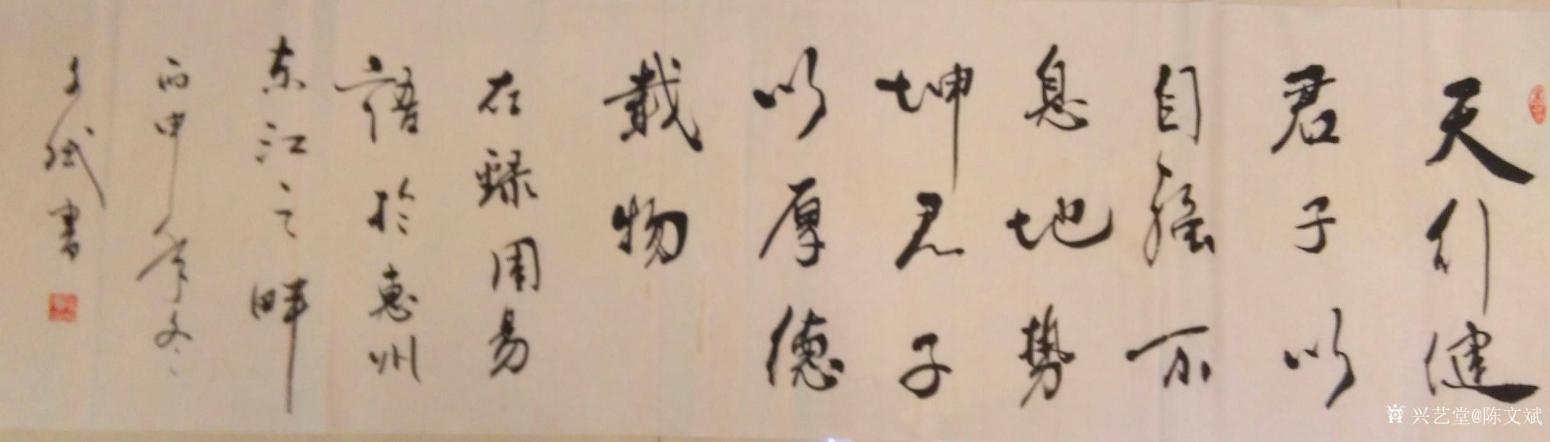 天行健
君子以
自强不
息地势
坤君子
以厚德
載物
在録周易
語於惠州
东江之畔
丙申年冬
文斌書
兴艺堂@陈文斌